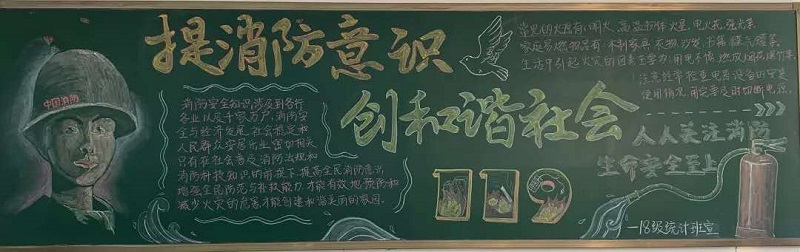 提消防意识
创和谐社会
中国消防
消防安全知识涉及到各行
各业以及千家万户,消防安
全与经济发展,社会稳定和
人民群众安居乐业密切相关
只有在社会普及消防法规和
消防科技知识的前提下,提高全民消防意识
增强全民防范与补救能力,才能有效地预防和
减少火灾的危害才能创建和谐美丽的家园。
常见的火源有:明火、高温物体、火星、电火花、强光等
家庭易燃物品有:木制家具、衣物、沙发、
生活中引起火灾的因素主要为:用电不慎、燃放烟花爆竹等
注意经常检查电器设备的安装
使用情况,
人人关注消防
生命安全至上
119
—18级统计班宣